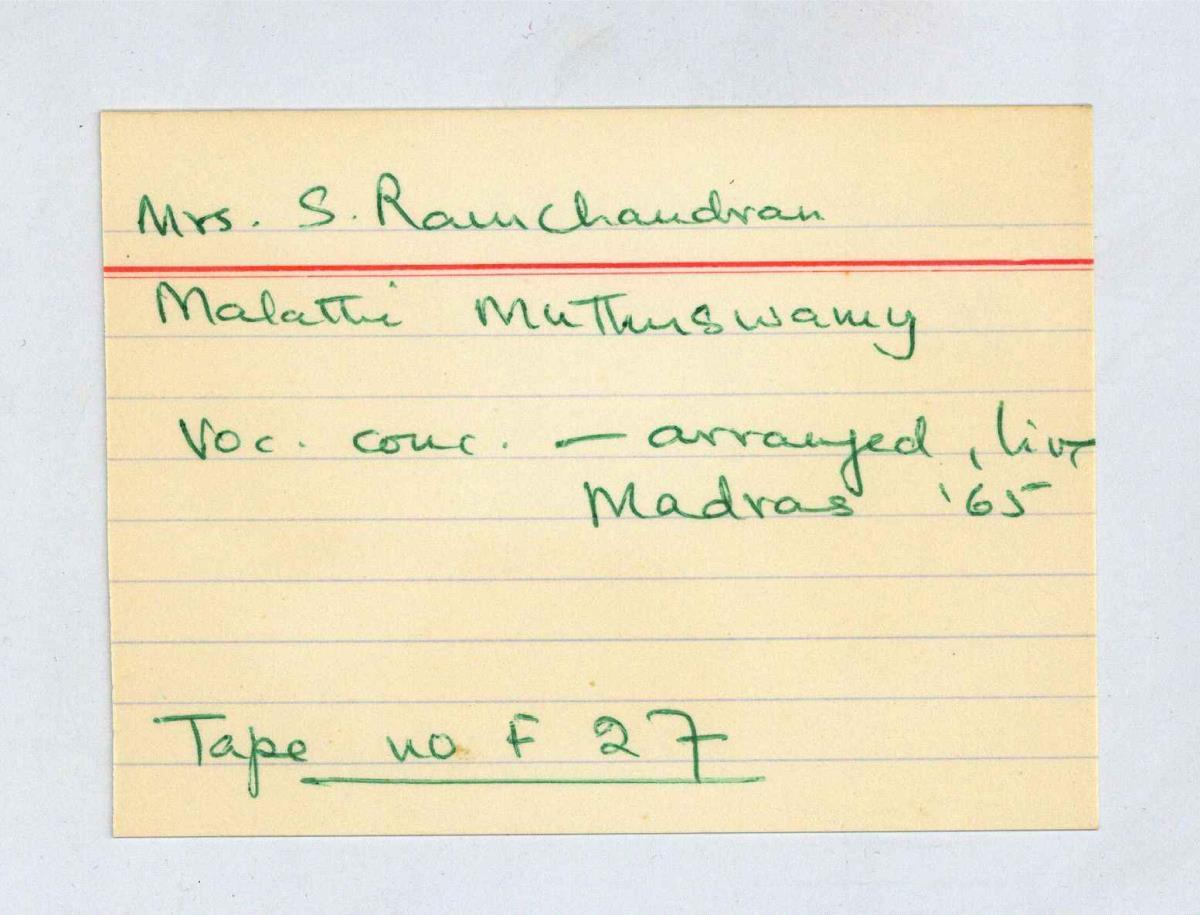 Mrs. S. Ramchandran
Malathi Muthuswamy
Voc. conc. — arranged, live
Madras '65
Tape no F 27